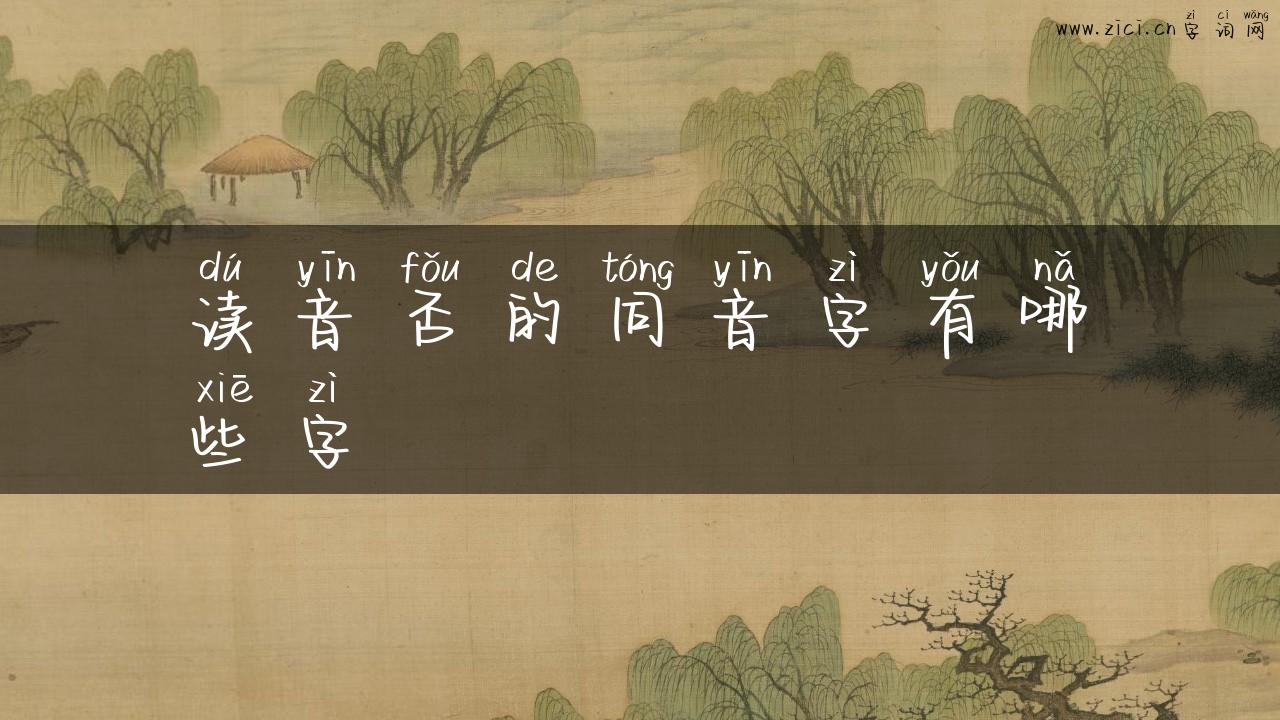 zì cí wǎng
www.zici.cn 字词网
dú yīn fǒu de tóng yīn zì yǒu nǎ
读音否的同音字有哪
xiē zì
些字